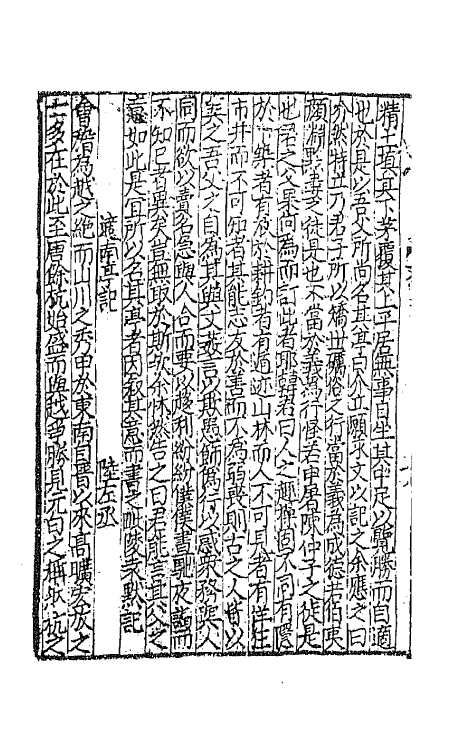 精土頂具下茅覆其上平居無事日坐其中足以覽勝而自適
也於是以吾父所尚名其亭曰介立願求文以記之余應之曰
介然特立乃君子所以矯世礪俗之行當於義為成德若伯夷
顔 之徒是也不當於義為行怪若申屠陳仲子之徒是
也 之父果何為而訂此者耶 君曰人之趣操固不同有隱
於 築者有汲於耕釣者有遁迹山林而人不可見者有徉狂
市井而不可知者其能志友於善而不為弱喪則古之人皆以
矣之吾父之自為其與文遊言以欺愚師偽行以惑衆務與人
同而欲以賣名急與人合而要以移利紛紛僕僕晝馳夜謁而
不知已者異矣豈無取於斯歟余怵然告之曰君能言其父之
意如此是宜所以名其亭者因叙其意而書之毗陵 默記
適南亭記 陸左丞
會稽為越之絶而山川之秀甲於東南自晉以來高曠宏放之
士多在於此至唐餘杭始盛而與越爭勝見元白之稱然杭之